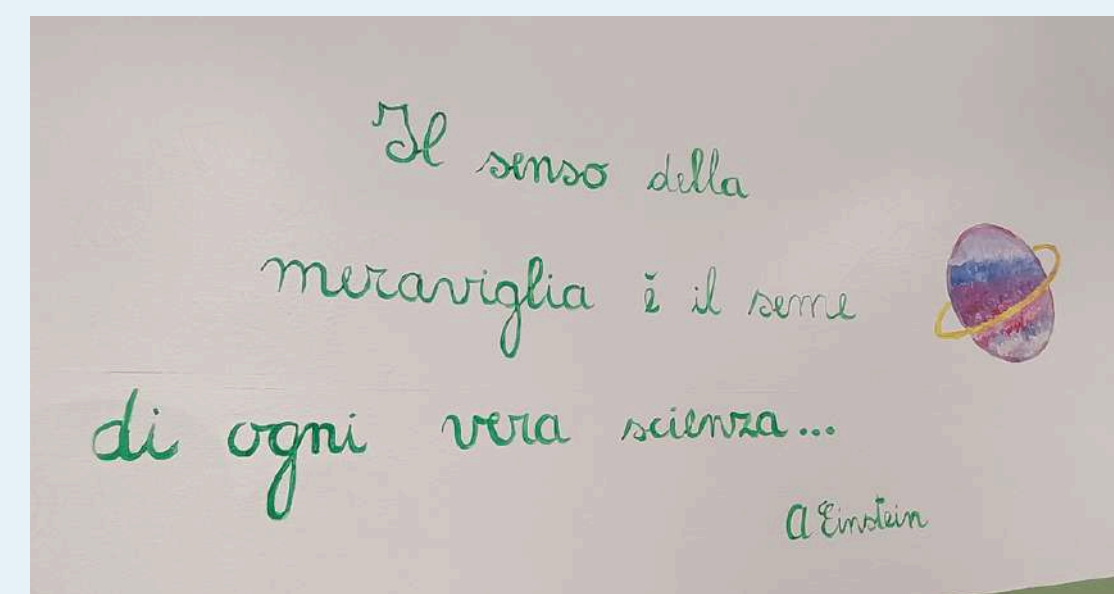 Il senso della
meraviglia è il seme
di ogni vera scienza...
A Einstein